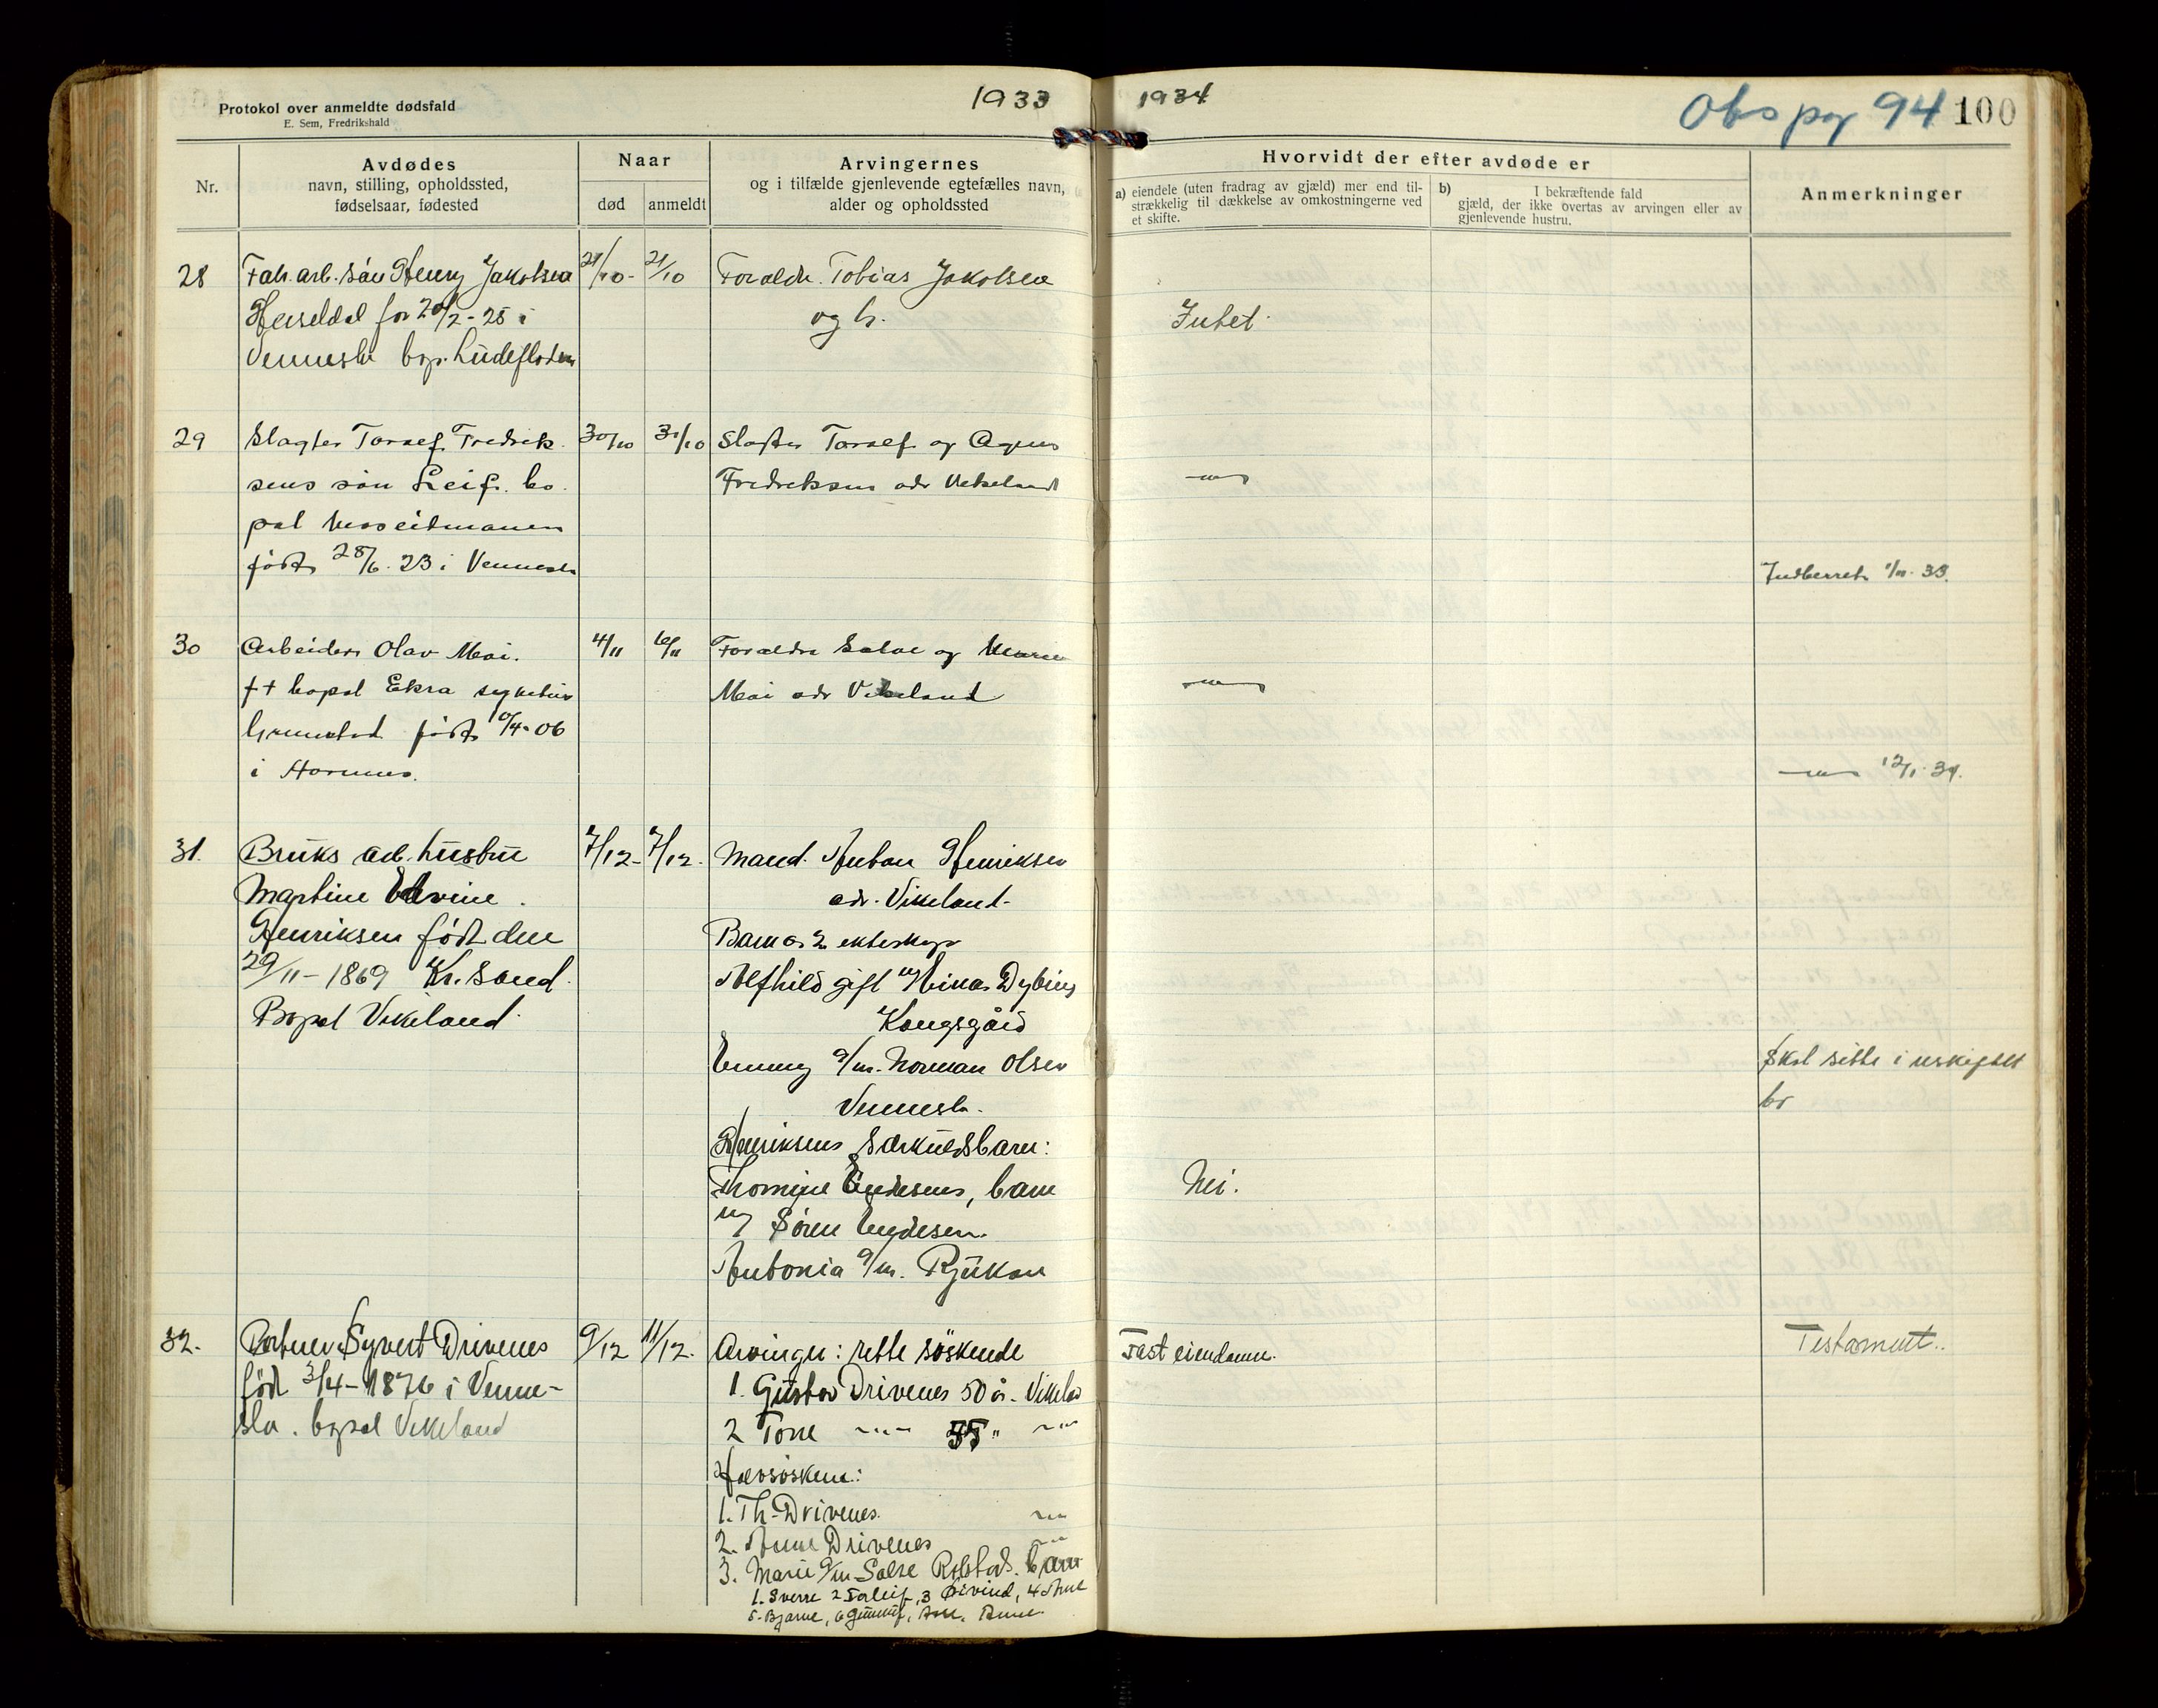 Protokol over anmeldte dødsfald
E. Sem, Fredrikshald
1933
1934
Obs pag 94
100
Nr.
Avdødes
navn, stilling, opholdssted,
fødselsaar, fødested
Naar
død
anmeldt
Arvingernes
og i tilfælde gjenlevende egtefælles navn,
alder og opholdssted
Hvorvidt der efter avdøde er
a) eiendele (uten fradrag av gjæld) mer end til-
strækkelig til dækkelse av omkostningerne ved
et skifte.
b) I bekræftende fald
gjæld, der ikke overtas av arvingen eller av
gjenlevende hustru.
Anmerkninger
28
Fab. arb. sön Henry Jakobsen
for 20/2-25 i
Vennesla bop.
21/10-
21/10
Foraldr. Tobias Jakobsen
og h.
Intet.
29
Slagter Toralf Fredrik-
sens sön Leif. bo-
pal Moseidmoen
født 28/6. 23 i Vennesla
30/10
31/10
Slagter Toralf og Agnes
Fredriksen adr Vikeland
—"—
Indberret 1/11. 33.
30
Arbeider Olav Moi.
ft bopal Ekra sykehus
Grimstad født 10/4-06
i Hornnes.
4/11
6/11
Foraldre Salve og Marie
Moi adr Vikeland
—"—
—"— 12/1. 34.
31.
Bruks arb. hustru
Martine Edvine
Henriksen født den
29/11-1869 Kr.sand.
Bopal Vikeland.
7/12-
7/12.
Mand. Anton Henriksen
adr. Vikeland.
Barn av 2 ekteskap
Alfhild gift m/ Einar Dybing
Kongsgård
Emmy g/m. Norman Olsen
Vennesla.
Henriksens Særkuldsbarn:
Thomine Endesens, barn
m/ Sören Endesen.
Antonia g/m. Rjukan
Nei.
Skal sitte i uskiftet
bo
32.
Portner Syvert Drivenes
född 3/4-1876 i Venne-
sla. bopal Vikeland
9/12
11/12.
Arvinger: rette söskende
1. Gustav Drivenes 50 år. Vikeland
2 Tone —"— 55 " —"—
Halvsösken:
1. Th. Drivenes. —"—
2. Anne Drivenes —"—
3. Marie g/m Salve Robstad. barn
1. Sverre 2 Torleif, 3 Øivind, 4 Arne
5. Bjarne, 6 Gunnuf, Anne.
Fast eiendom.
Testament.